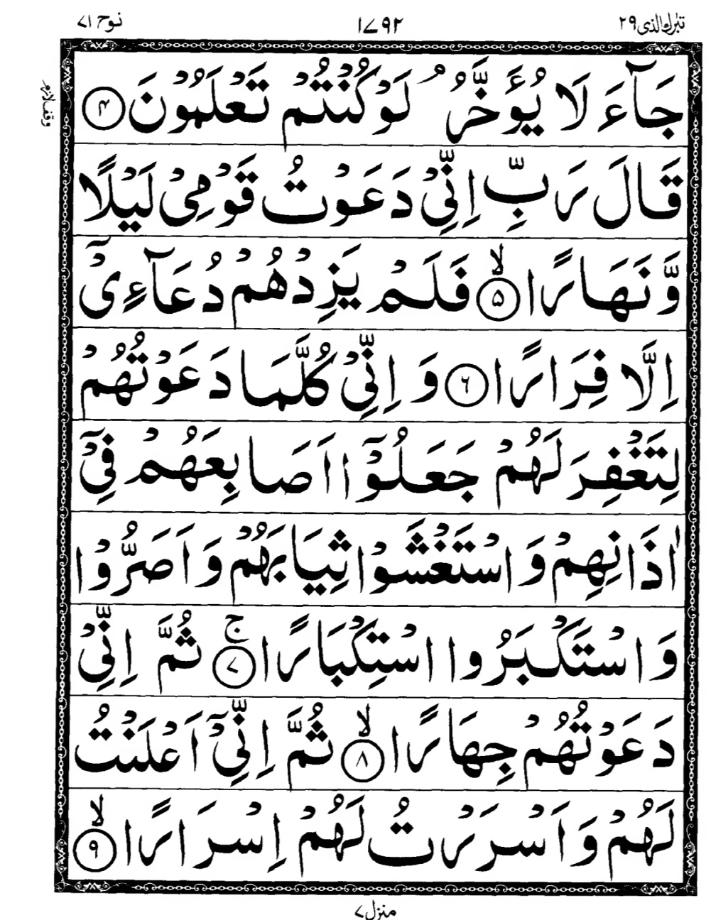 تبٰرك الذی ٢٩
١٧٩٢
نوح ٧١
جَآءَ لَا يُؤَخَّرُ ۘ لَوْ كُنْتُمْ تَعْلَمُوْنَ ۝٤
قَالَ رَبِّ اِنِّيْ دَعَوْتُ قَوْمِيْ لَيْلًا
وَّنَهَارًا ۝٥ۙ فَلَمْ يَزِدْهُمْ دُعَآءِيْٓ
اِلَّا فِرَارًا ۝٦ وَ اِنِّيْ كُلَّمَا دَعَوْتُهُمْ
لِتَغْفِرَ لَهُمْ جَعَلُوْٓا اَصَابِعَهُمْ فِيْٓ
اٰذَانِهِمْ وَ اسْتَغْشَوْا ثِيَابَهُمْ وَ اَصَرُّوْا
وَ اسْتَكْبَرُوا اسْتِكْبَارًا ۝٧ۚ ثُمَّ اِنِّيْ
دَعَوْتُهُمْ جِهَارًا ۝٨ۙ ثُمَّ اِنِّيْٓ اَعْلَنْتُ
لَهُمْ وَ اَسْرَرْتُ لَهُمْ اِسْرَارًا ۝٩ۙ
منزل ٧